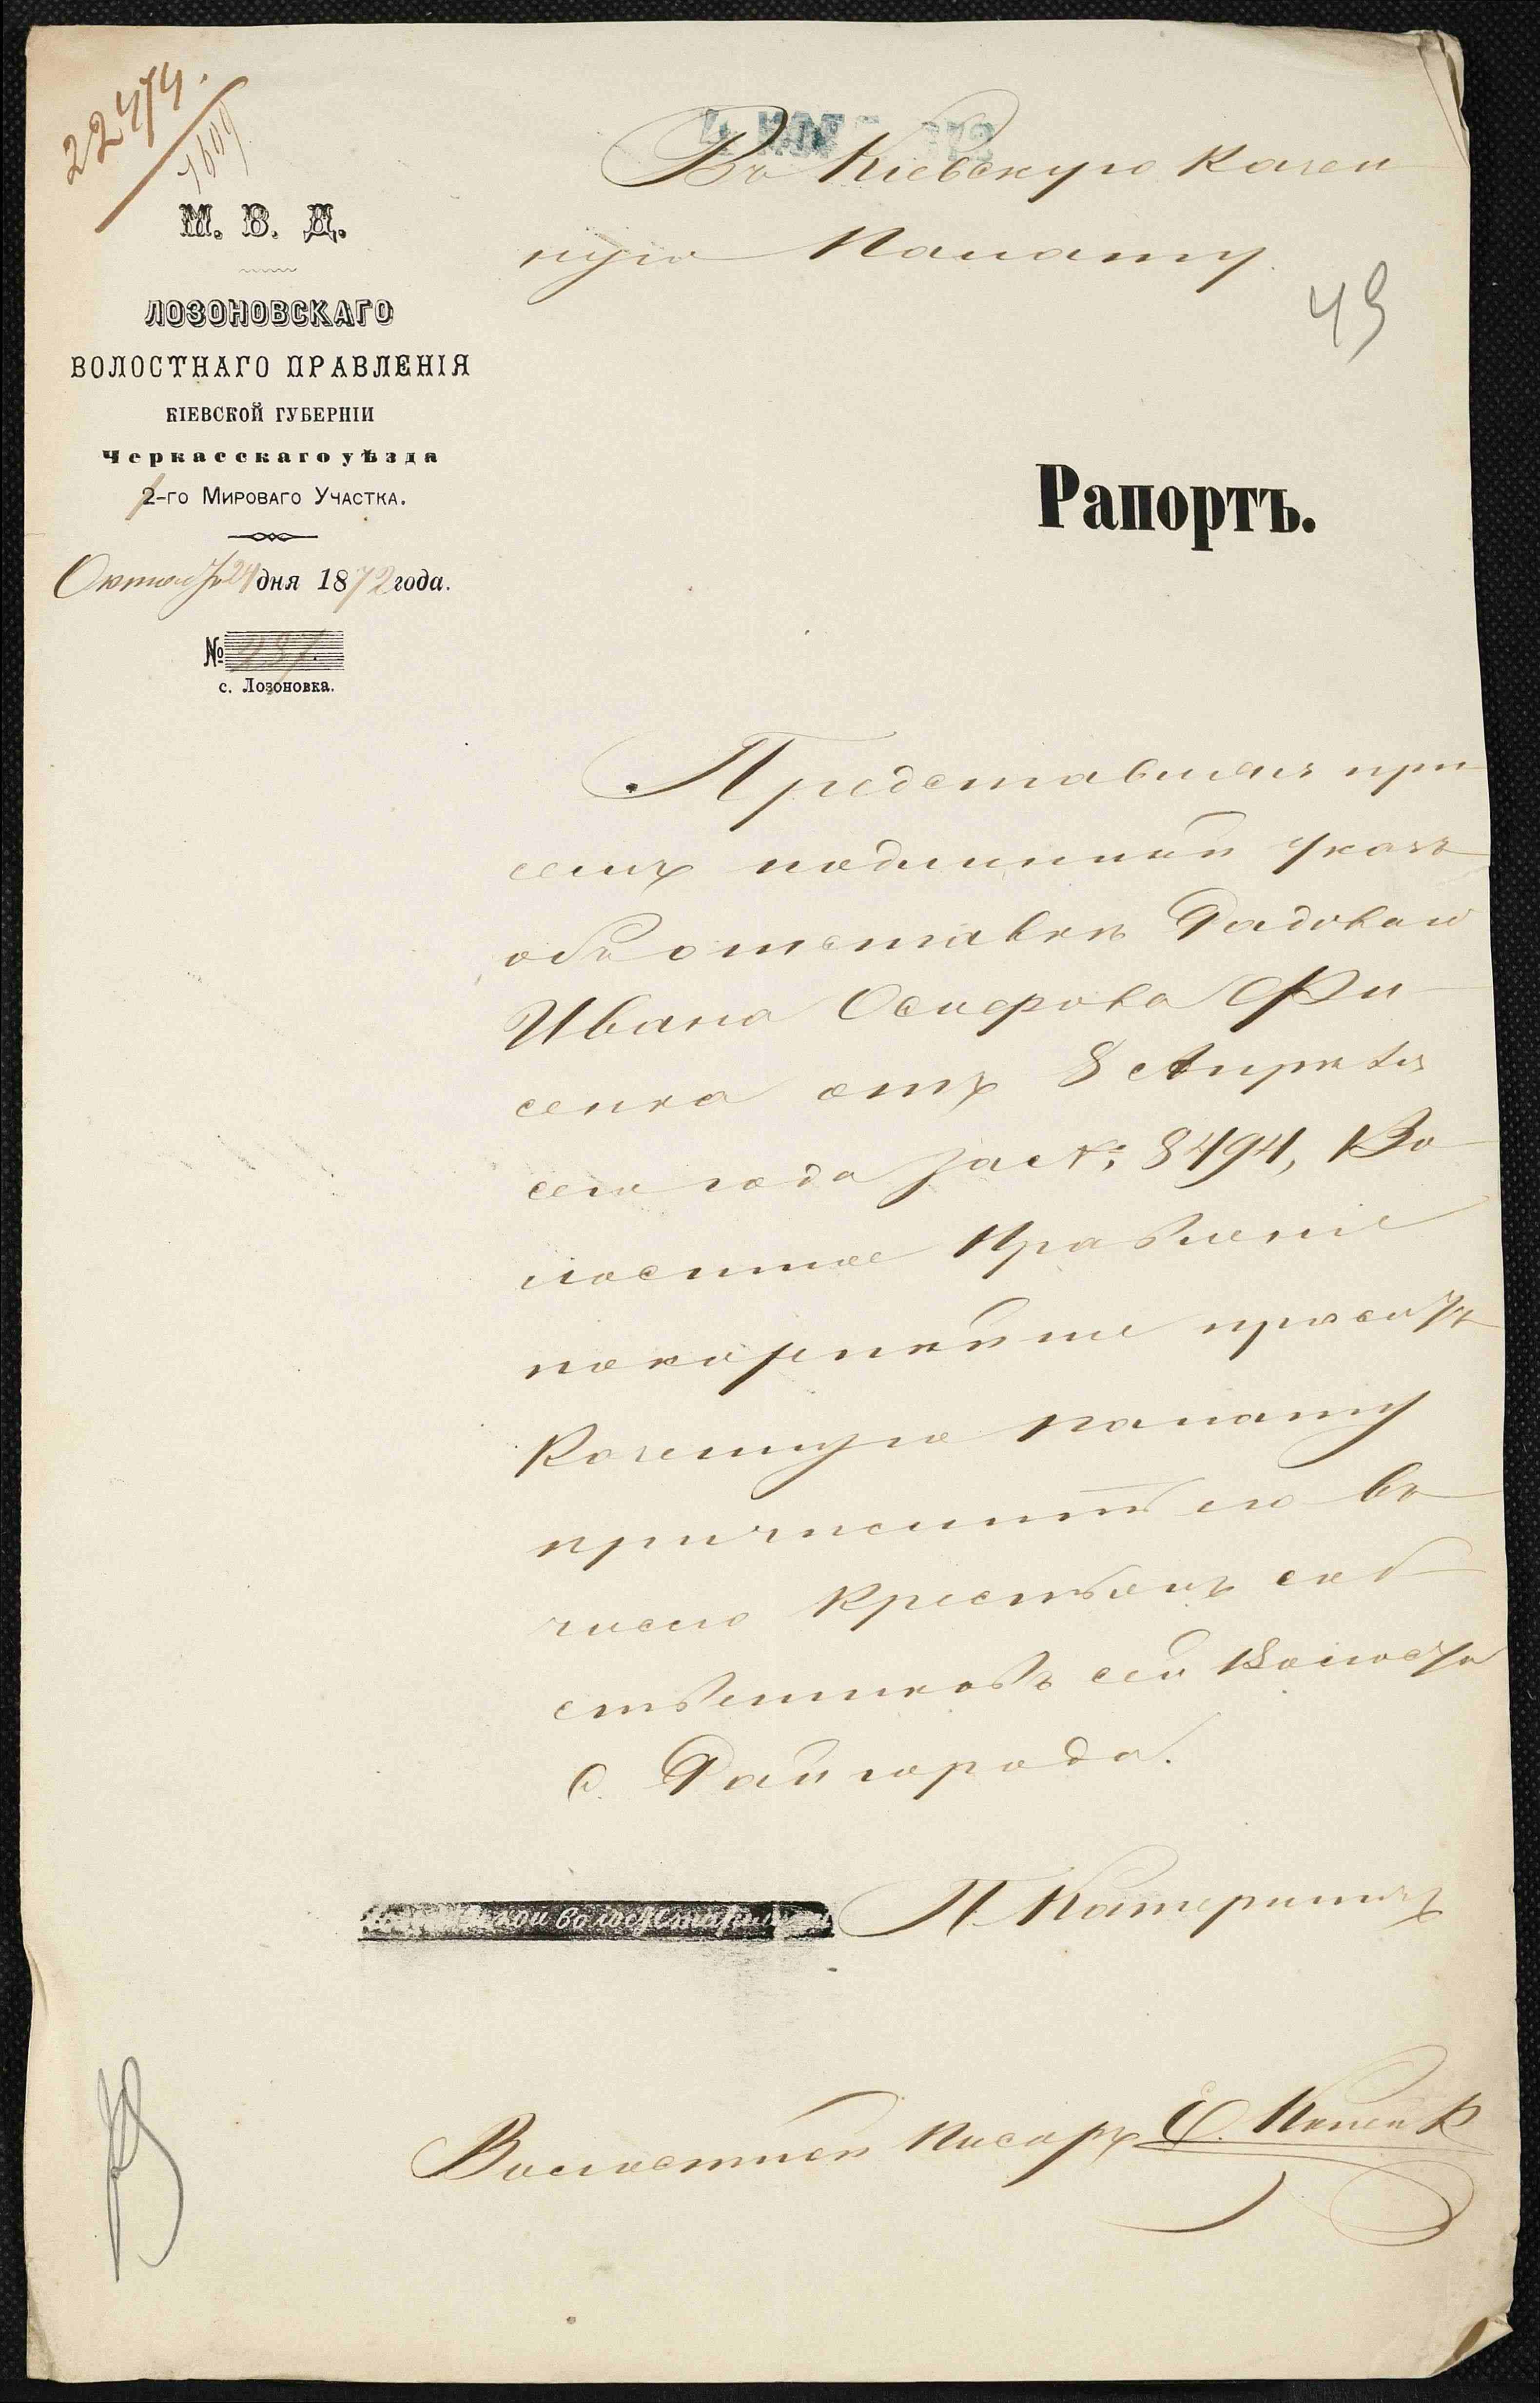 22474.
7609
М. В. Д.
ЛОЗОНОВСКАГО
ВОЛОСТНАГО ПРАВЛЕНІЯ
КІЕВСКОЙ ГУБЕРНІИ
Черкасскаго уѣзда
2-го Мироваго Участка.
Октября 24 дня 1872 года.
№ 237.
с. Лозоновка.
4 НОЯ 1872
Въ Кіевскую Казен
ную Палату.
49
Рапортъ.
Представляя при
семъ подлинный указъ
объ отставкѣ Рядоваго
Ивана Осифова Фи
сенка отъ 8 Апрѣля
сего года за №: 8494, Во
лостное Правленіе
покорнѣйше проситъ
Казенную палату
причислить его въ
число крестьянъ соб
ственниковъ сей Волости
с. Райгорода.
волост. старшина П. Катеринич
Волостной Писарь Е.